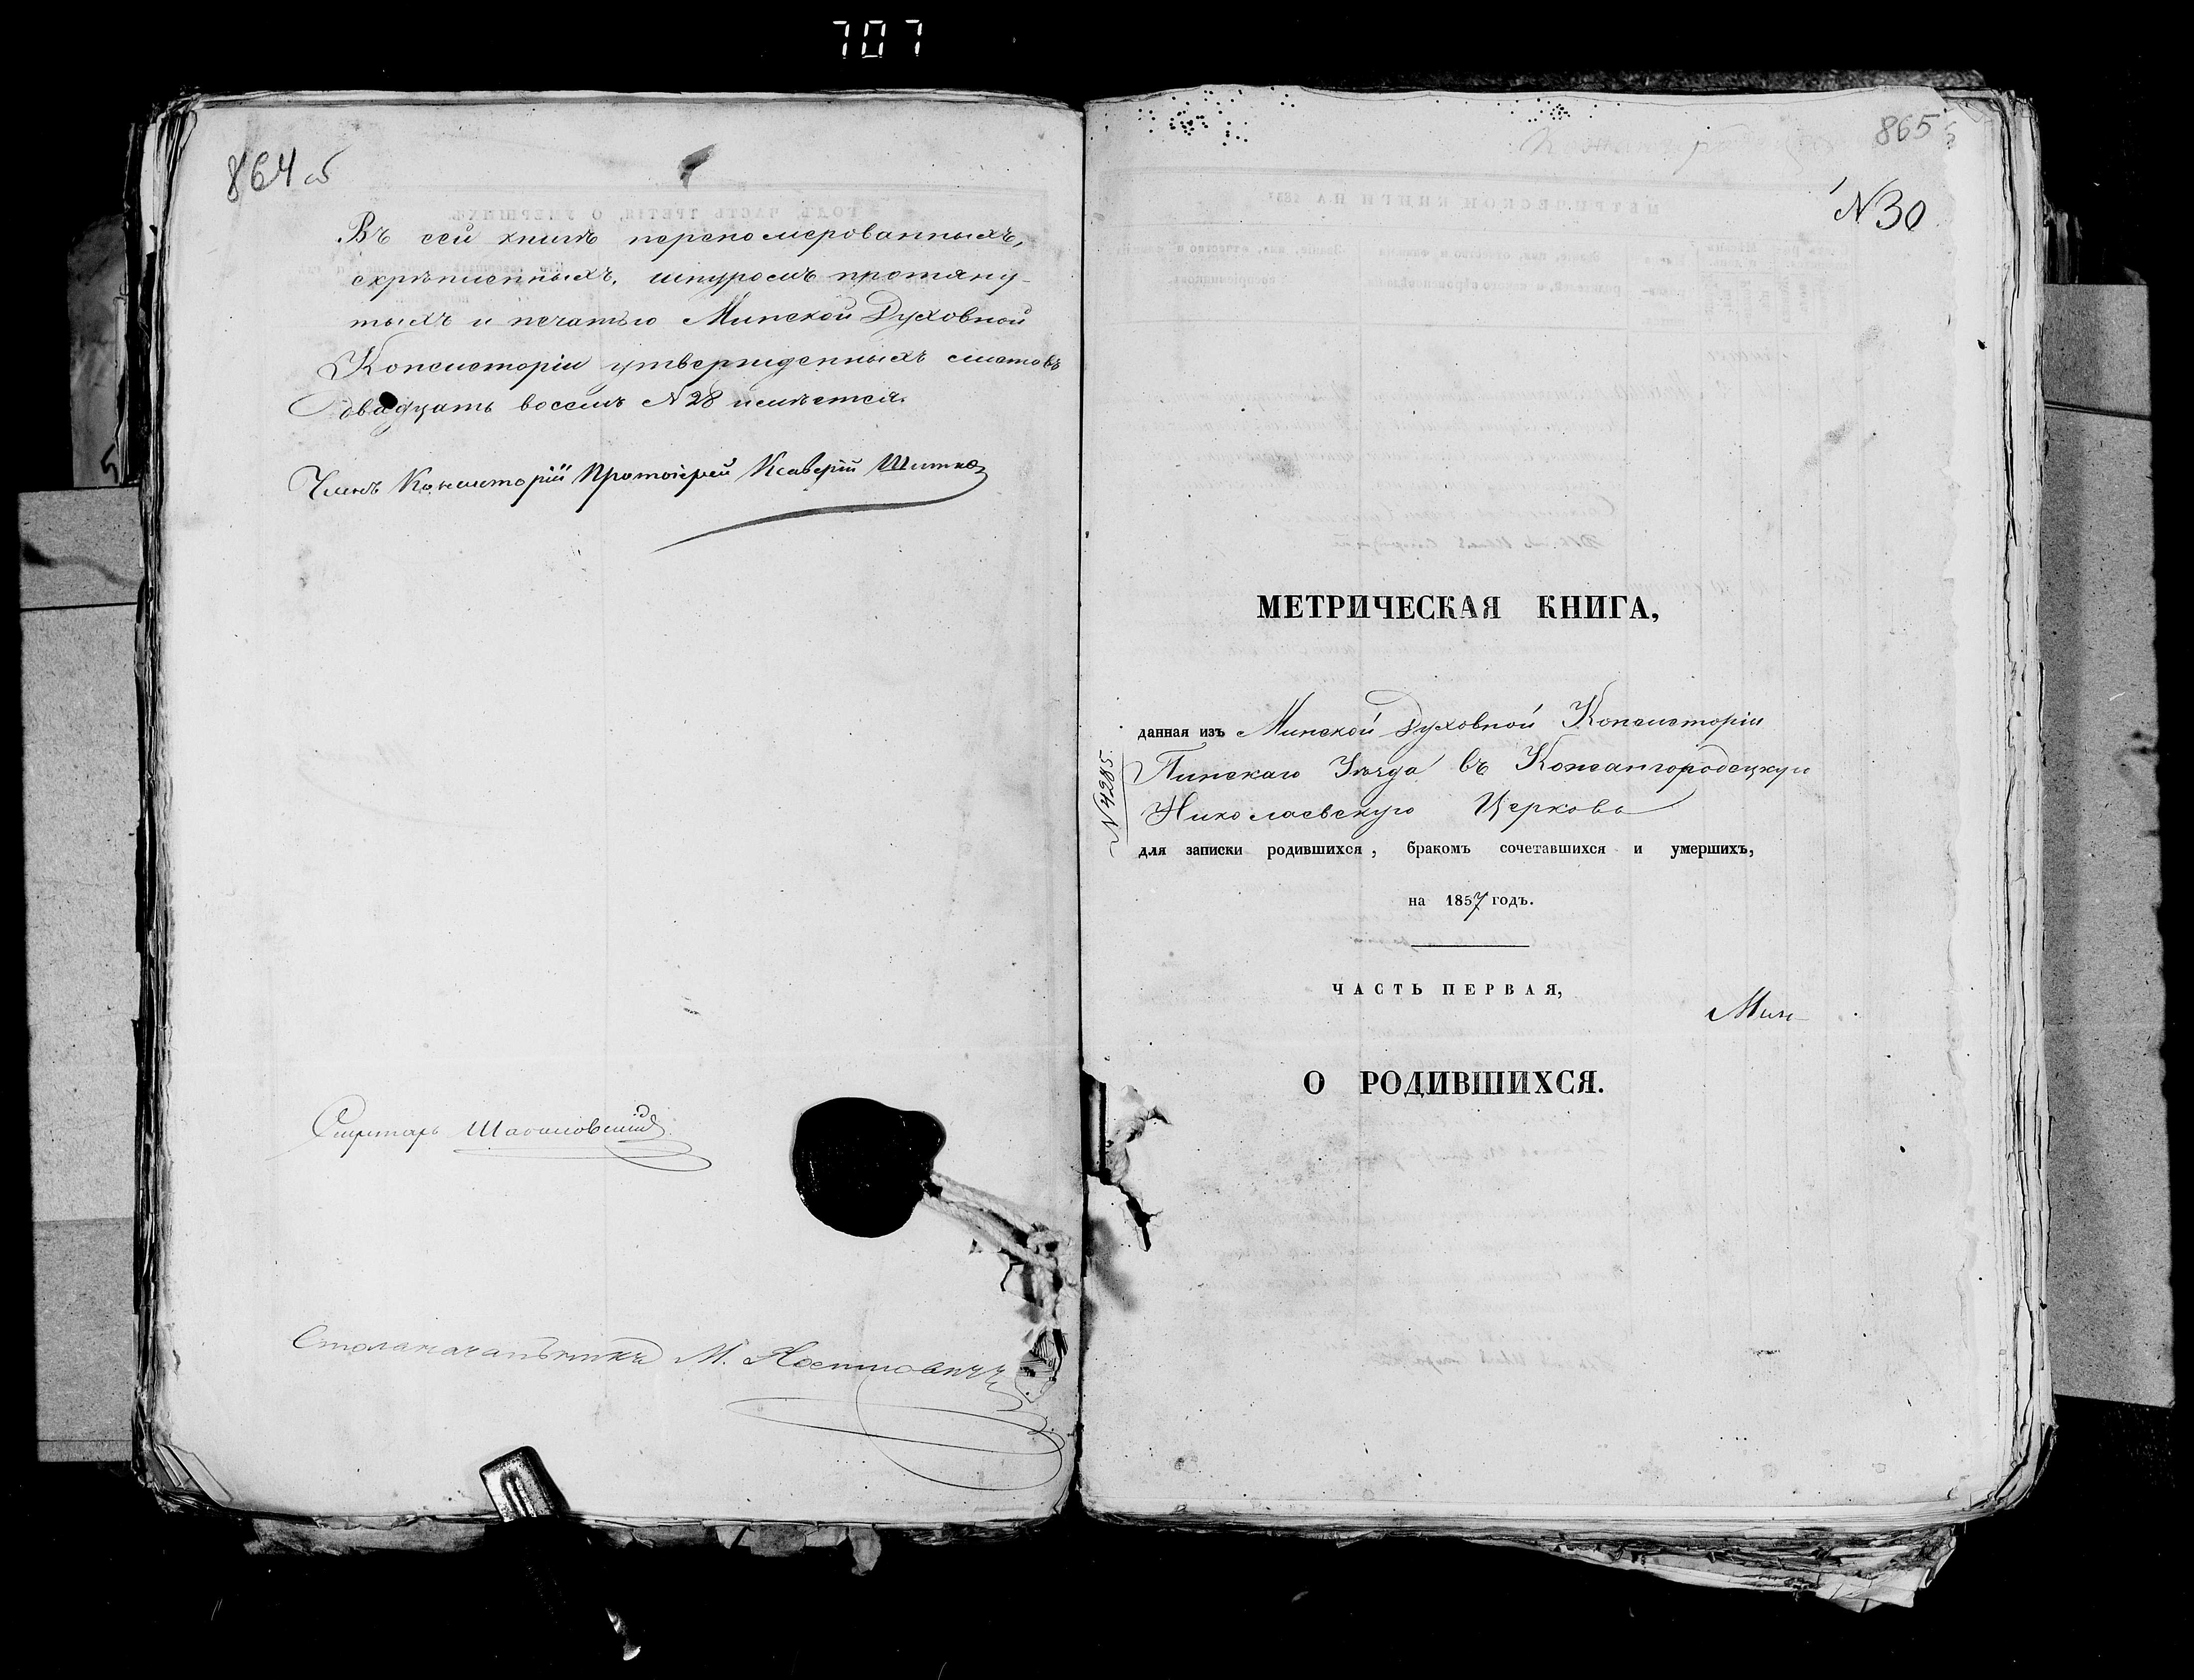 707
864 об
Въ сей книгѣ переномерованныхъ,
скрѣпленныхъ, шнуромъ протяну-
тыхъ и печатью Минской Духовной
Консисторіи утвержденныхъ листовъ
двадцать восемь №28 имѣется.
Членъ Консисторіи Протоіерей Ксаверій
Секретарь
Столоначальникъ М.
865
№30
МЕТРИЧЕСКАЯ КНИГА,
данная изъ Минской Духовной Консисторіи
Пинскаго Уѣзда въ Кожангородецкую
Николаевскую Церковь
№4285.
для записки родившихся, бракомъ сочетавшихся и умершихъ,
на 1857 годъ.
ЧАСТЬ ПЕРВАЯ,
Мин-
О РОДИВШИХСЯ.